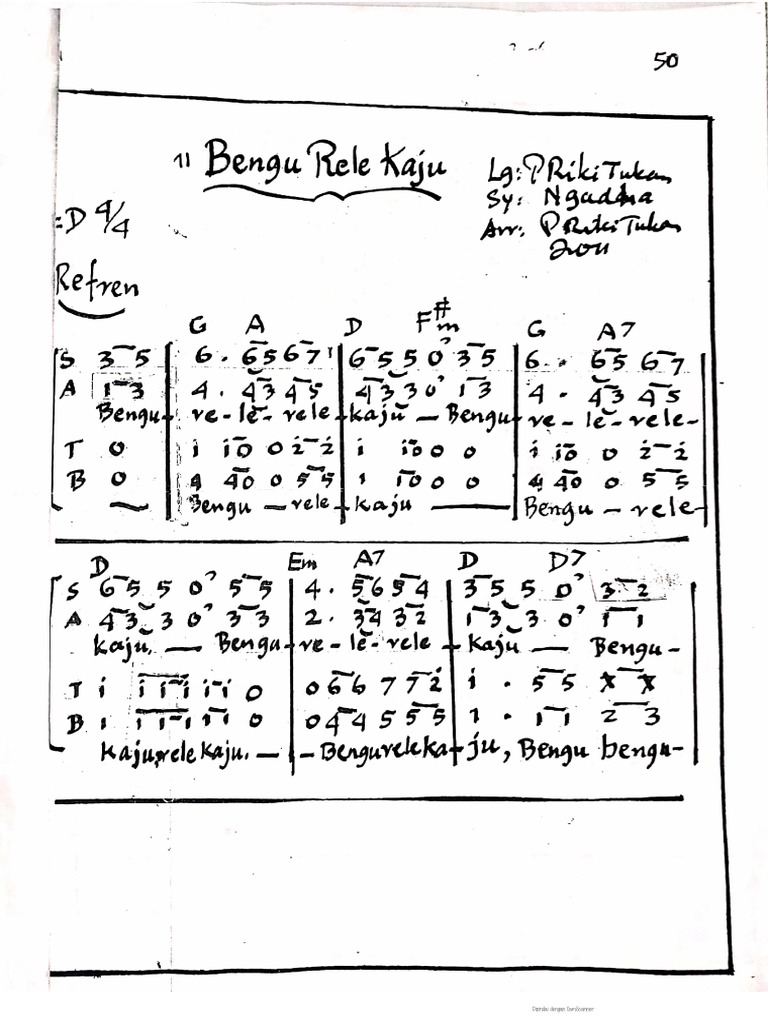 50
11 Bengu Rele Kaju
Lg: P Riki Tukan
Sy: Ngadha
Arr: P Riki Tukan
2011
=D 4/4
Refren
G A D F#m G A7
S 3 5 | 6 . 6 5 6 7 | 6 5 5 0' 3 5 | 6 . 6 5 6 7
A 1 3 | 4 . 4 3 4 5 | 4 3 3 0' 1 3 | 4 . 4 3 4 5
Bengu - re - le - rele - kaju — Bengu - re - le - rele -
T 0 | i i 0 0 2̇ 2̇ | i i 0 0 0 | i i 0 0 2̇ 2̇
B 0 | 4 4 0 0 5 5 | 1 1 0 0 0 | 4 4 0 0 5 5
Bengu — rele - kaju — Bengu - rele -
D Em A7 D D7
S 6 5 5 0' 5 5 | 4 . 5 6 5 4 | 3 5 5 0' 3 2
A 4 3 3 0' 3 3 | 2 . 3 4 3 2 | 1 3 3 0' 1 1
kaju. — Bengu - re - le - rele - kaju — Bengu -
T i i i i i i 0 | 0 6 6 7 7 2̇ | i . 5 5
B 1 1 1 1 1 1 0 | 0 4 4 5 5 5 | 1 . 1 1 2 3
Kaju, rele kaju. — - Bengu rele ka - ju, Bengu bengu -